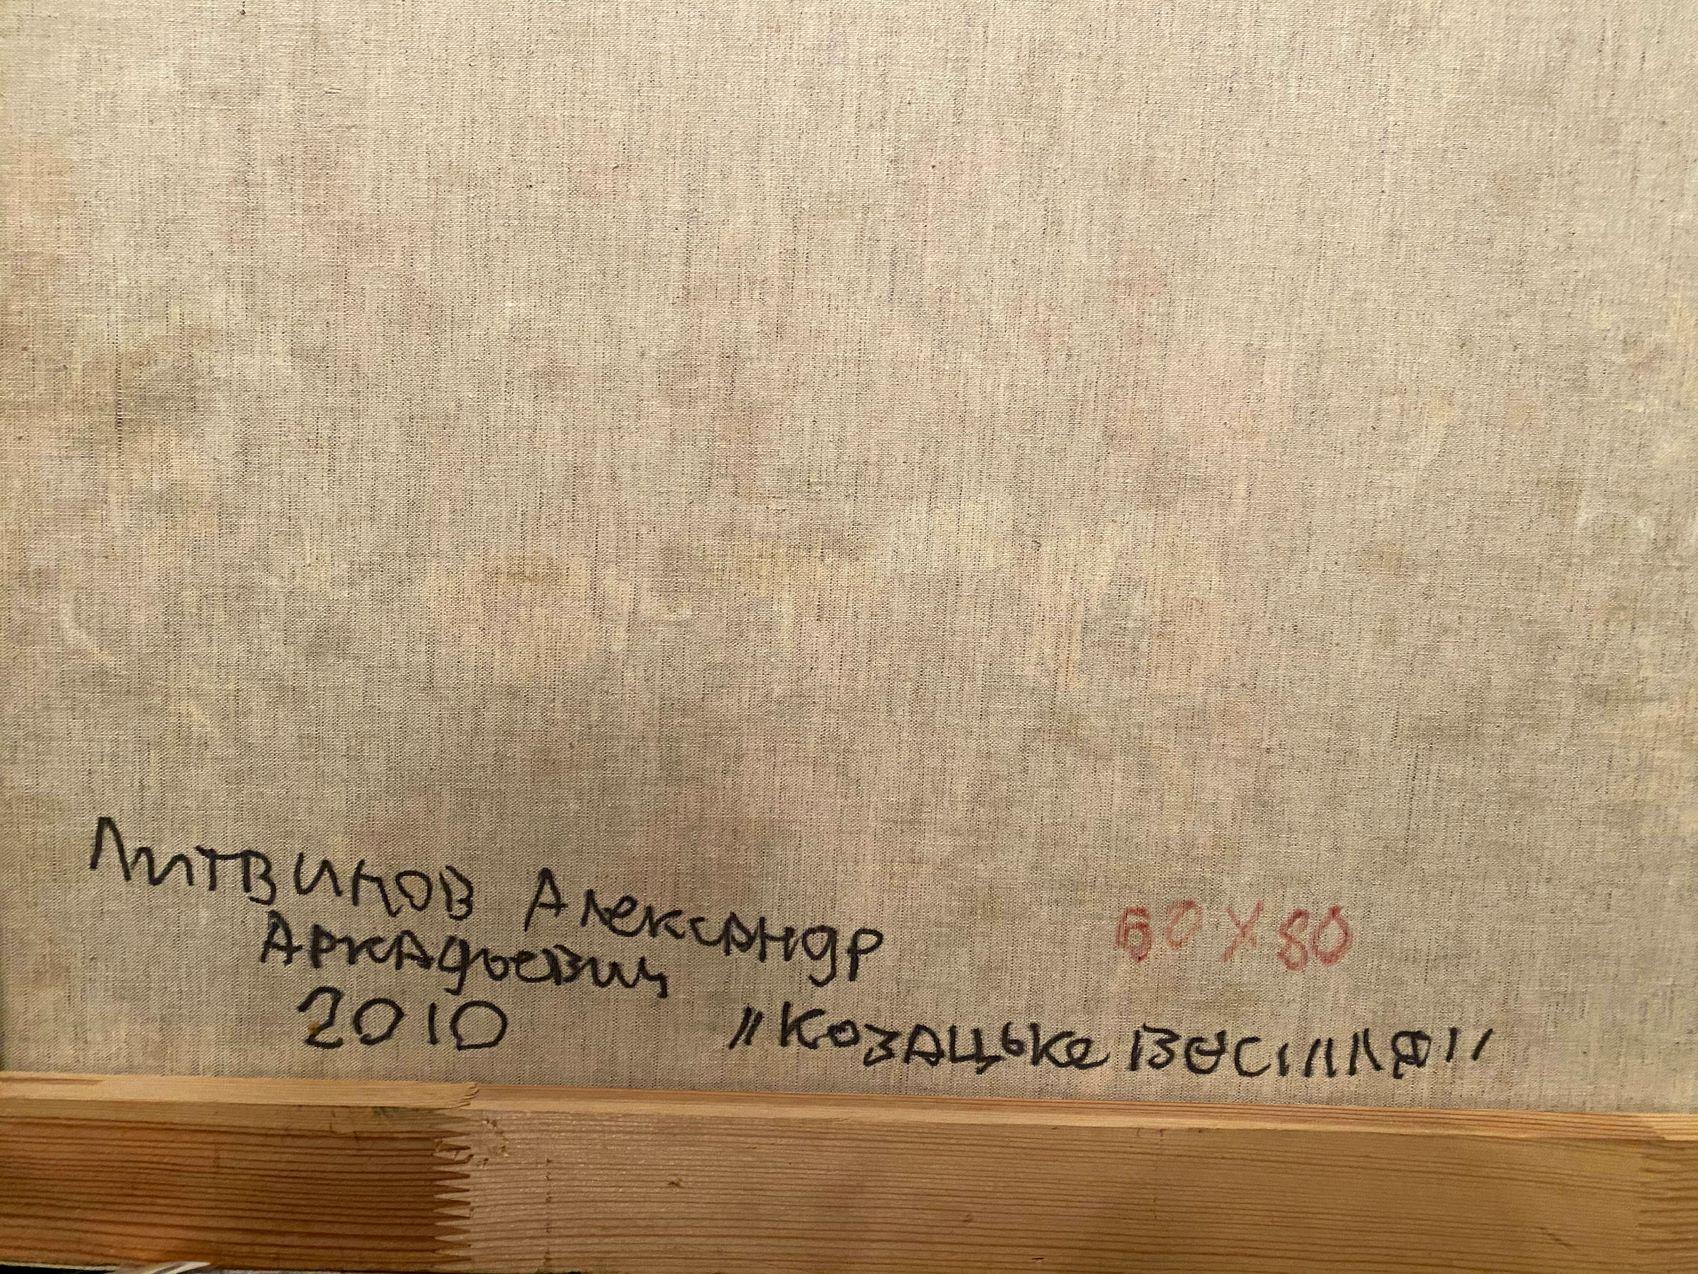 Литвинов Александр
Аркадьевич
60 X 80
2010
"Козацьке весілля"